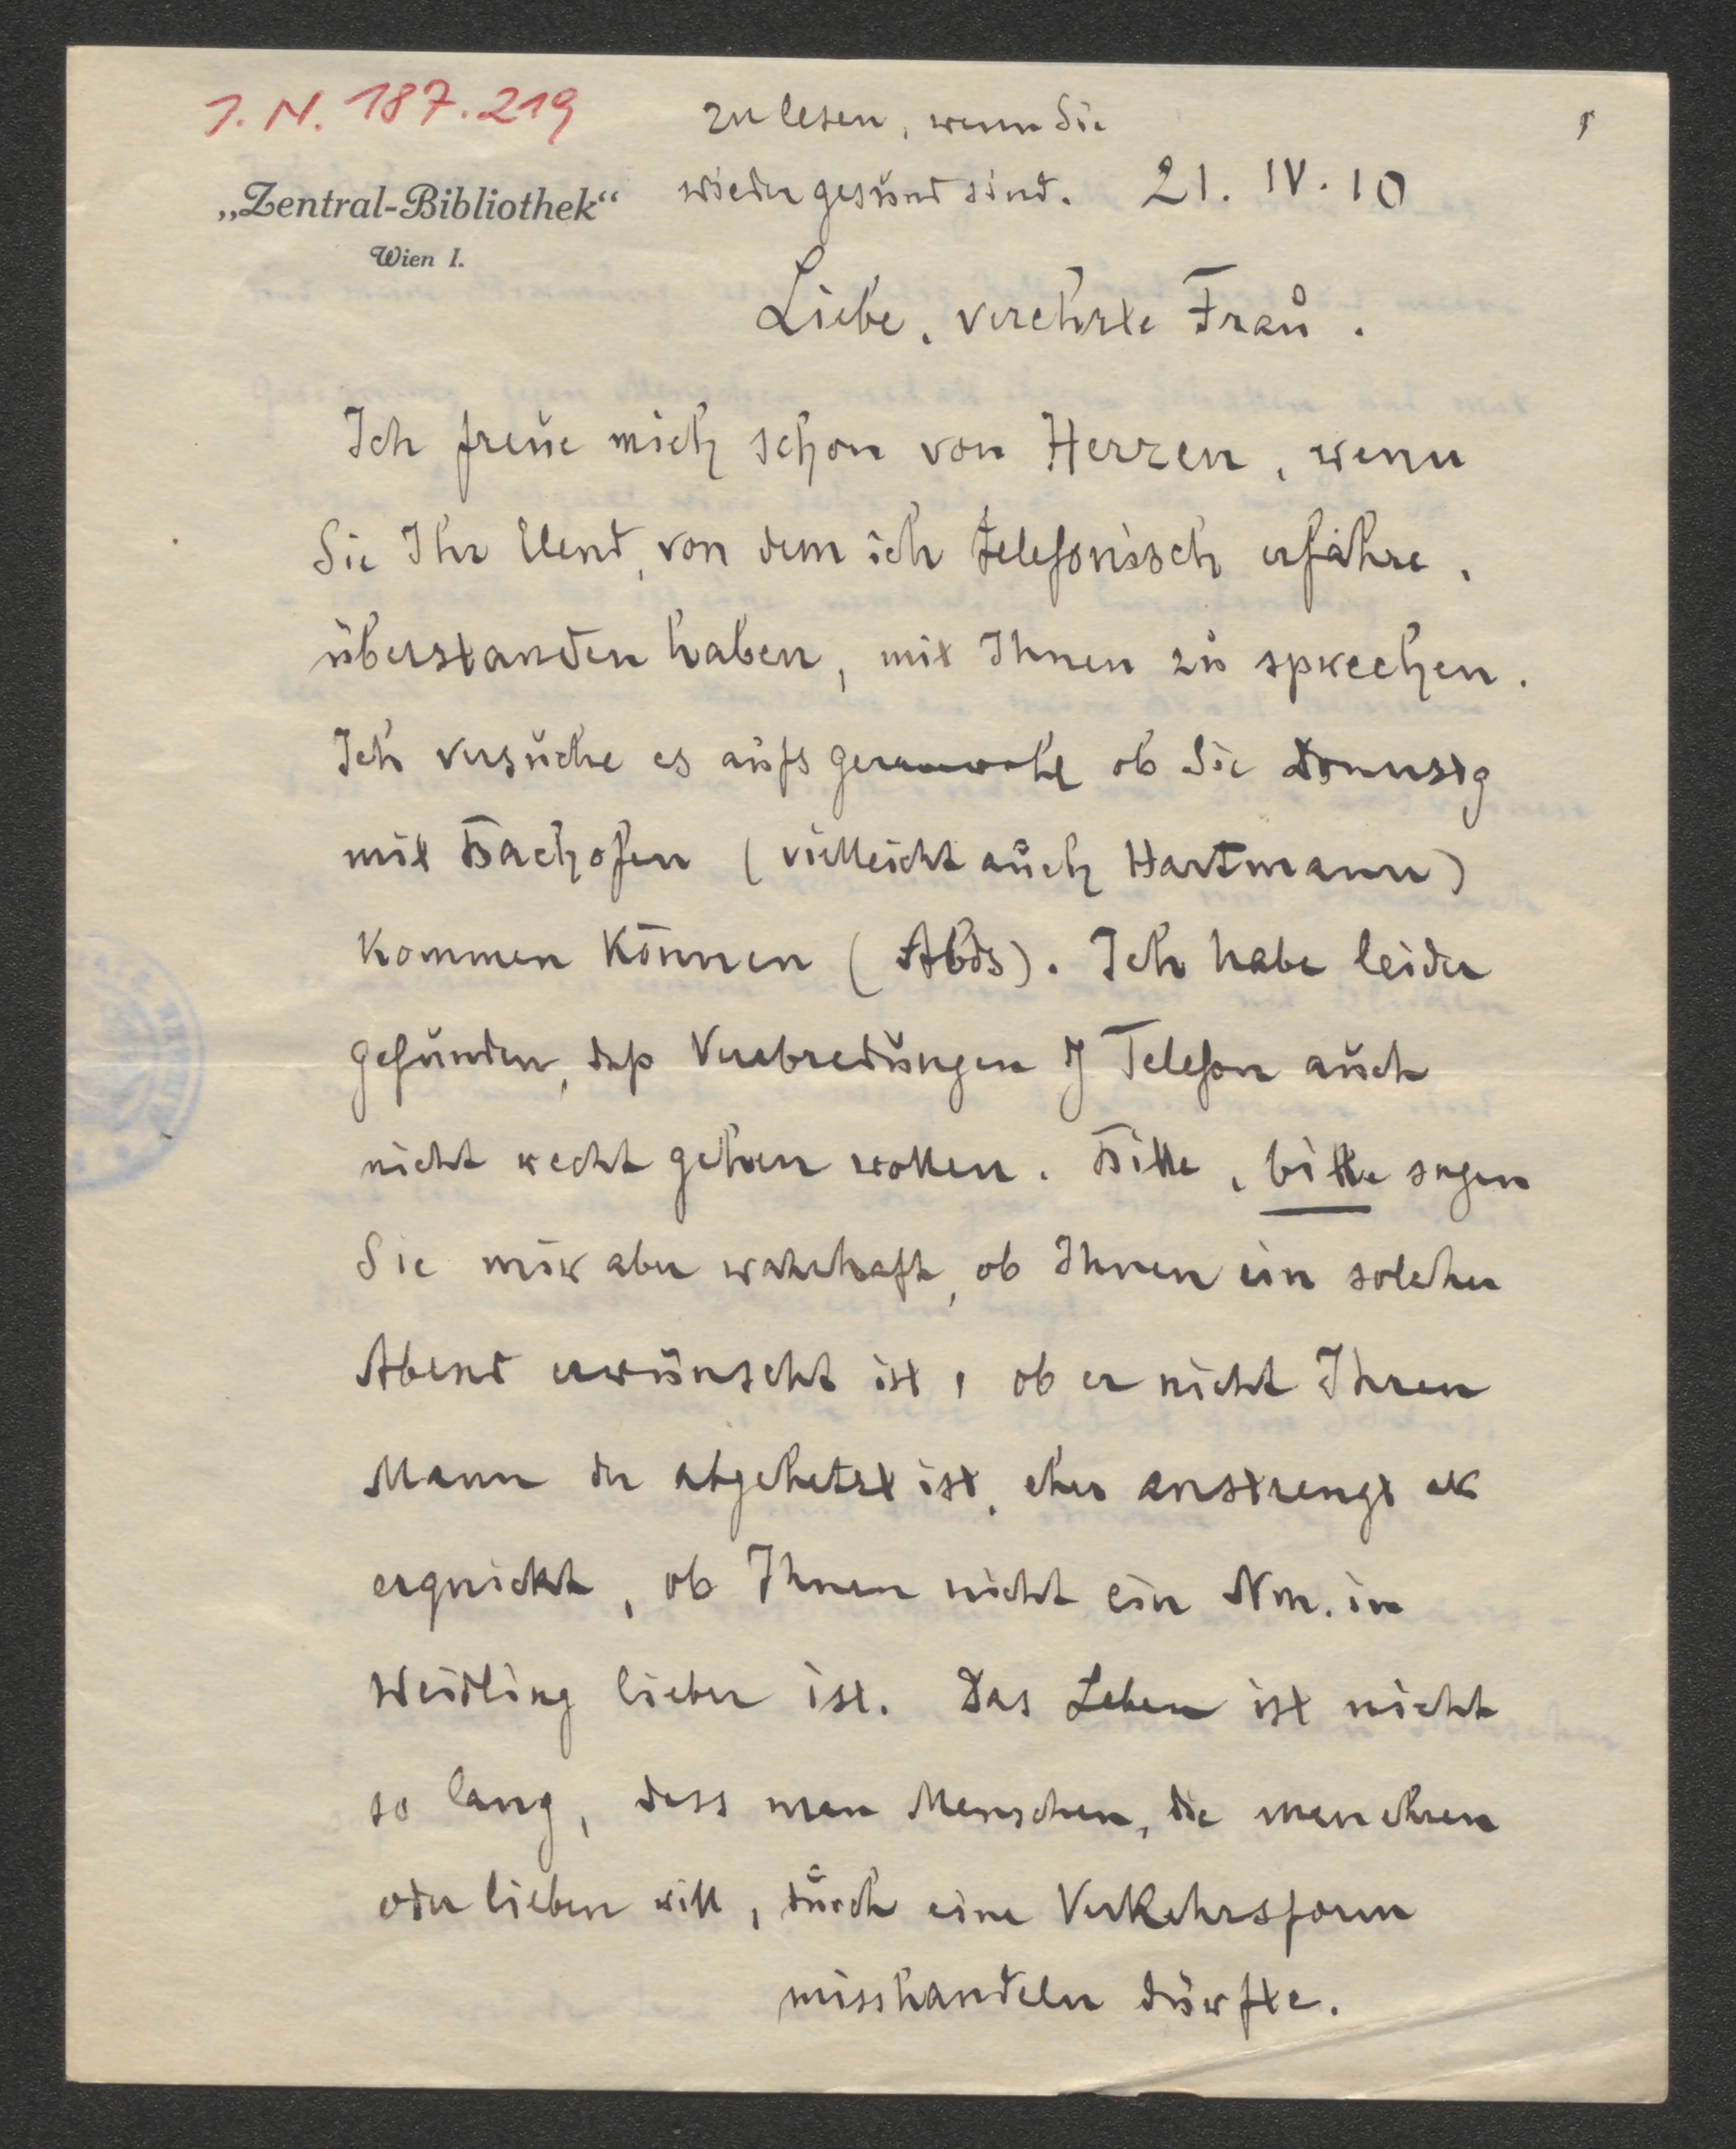 I. N. 187.219
zu lesen, wenn Sie
wieder gesund sind. 21. IV. 10
„Zentral-Bibliothek“
Wien I.
Liebe, verehrte Frau.
Ich freue mich schon von Herzen, wenn
Sie Ihr Elend, von dem ich telefonisch erfahre,
überstanden haben, mit Ihnen zu sprechen.
Ich versuche es aufs geratewohl ob Sie Donnerstg
mit Bachofen (vielleicht auch Hartmann)
kommen können (Abds). Ich habe leider
gefunden, daß Verabredungen Telefon auch
nicht recht gehen wollen. Bitte, bitte sagen
Sie mir aber wahrhaft, ob Ihnen ein solcher
Abend erwünscht ist, ob er nicht Ihren
Mann der abgehetzt ist, eher anstrengt als
erquickt, ob Ihnen nicht ein Nm. in
Weidling lieber ist. Das Leben ist nicht
so lang, dass man Menschen, die man ehren
oder lieben will, durch eine Verkehrsform
misshandeln dürfte.